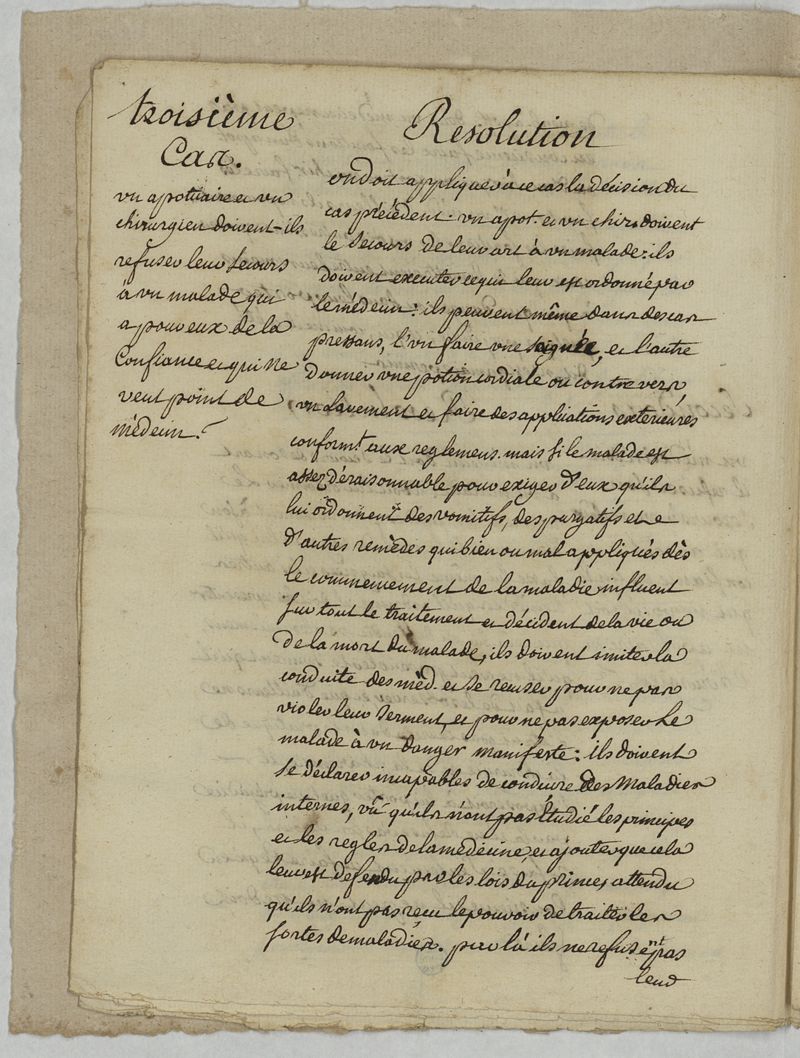 troisième
Cas.
un apotuaire et un
chirurgien doivent-ils
refuser leur secours
à un malade qui
a pour eux de la
Confiance et qui ne
veut point de
médecin?
Resolution
on doit appliquer à ce cas la décision du
cas précédent. un apot. et un chir. doivent
le secours de leur art à un malade: ils
doivent executer ce qui leur est ordonné par
le médecin: ils peuvent même dans des cas
pressans, l'un faire une saignée, et l'autre
donner une potion cordiale ou contre vers
un lavement et faire des applications exterieures
conformt. aux reglemens. mais si le malade est
assez déraisonnable pour exiger d'eux qu'ils
lui ordonnent des vomitifs, des purgatifs et
d'autres remèdes qui bien ou mal appliqués dès
le commencement de la maladie influent
sur tout le traitement et décident de la vie ou
de la mort du malade, ils doivent imiter la
conduite des méd. et se recuser pour ne pas
violer leur serment, et pour ne pas exposer le
malade à un danger manifeste: ils doivent
se déclarer incapables de conduire des Maladies
internes, vû qu'ils n'ont pas étudié les principes
et les regles de la médecine, et ajouter que cela
leur est defendu par les lois du prince, attendu
qu'ils n'ont pas reçu le pouvoir de traiter les
sortes de maladies. par là ils ne refusent pas
leur